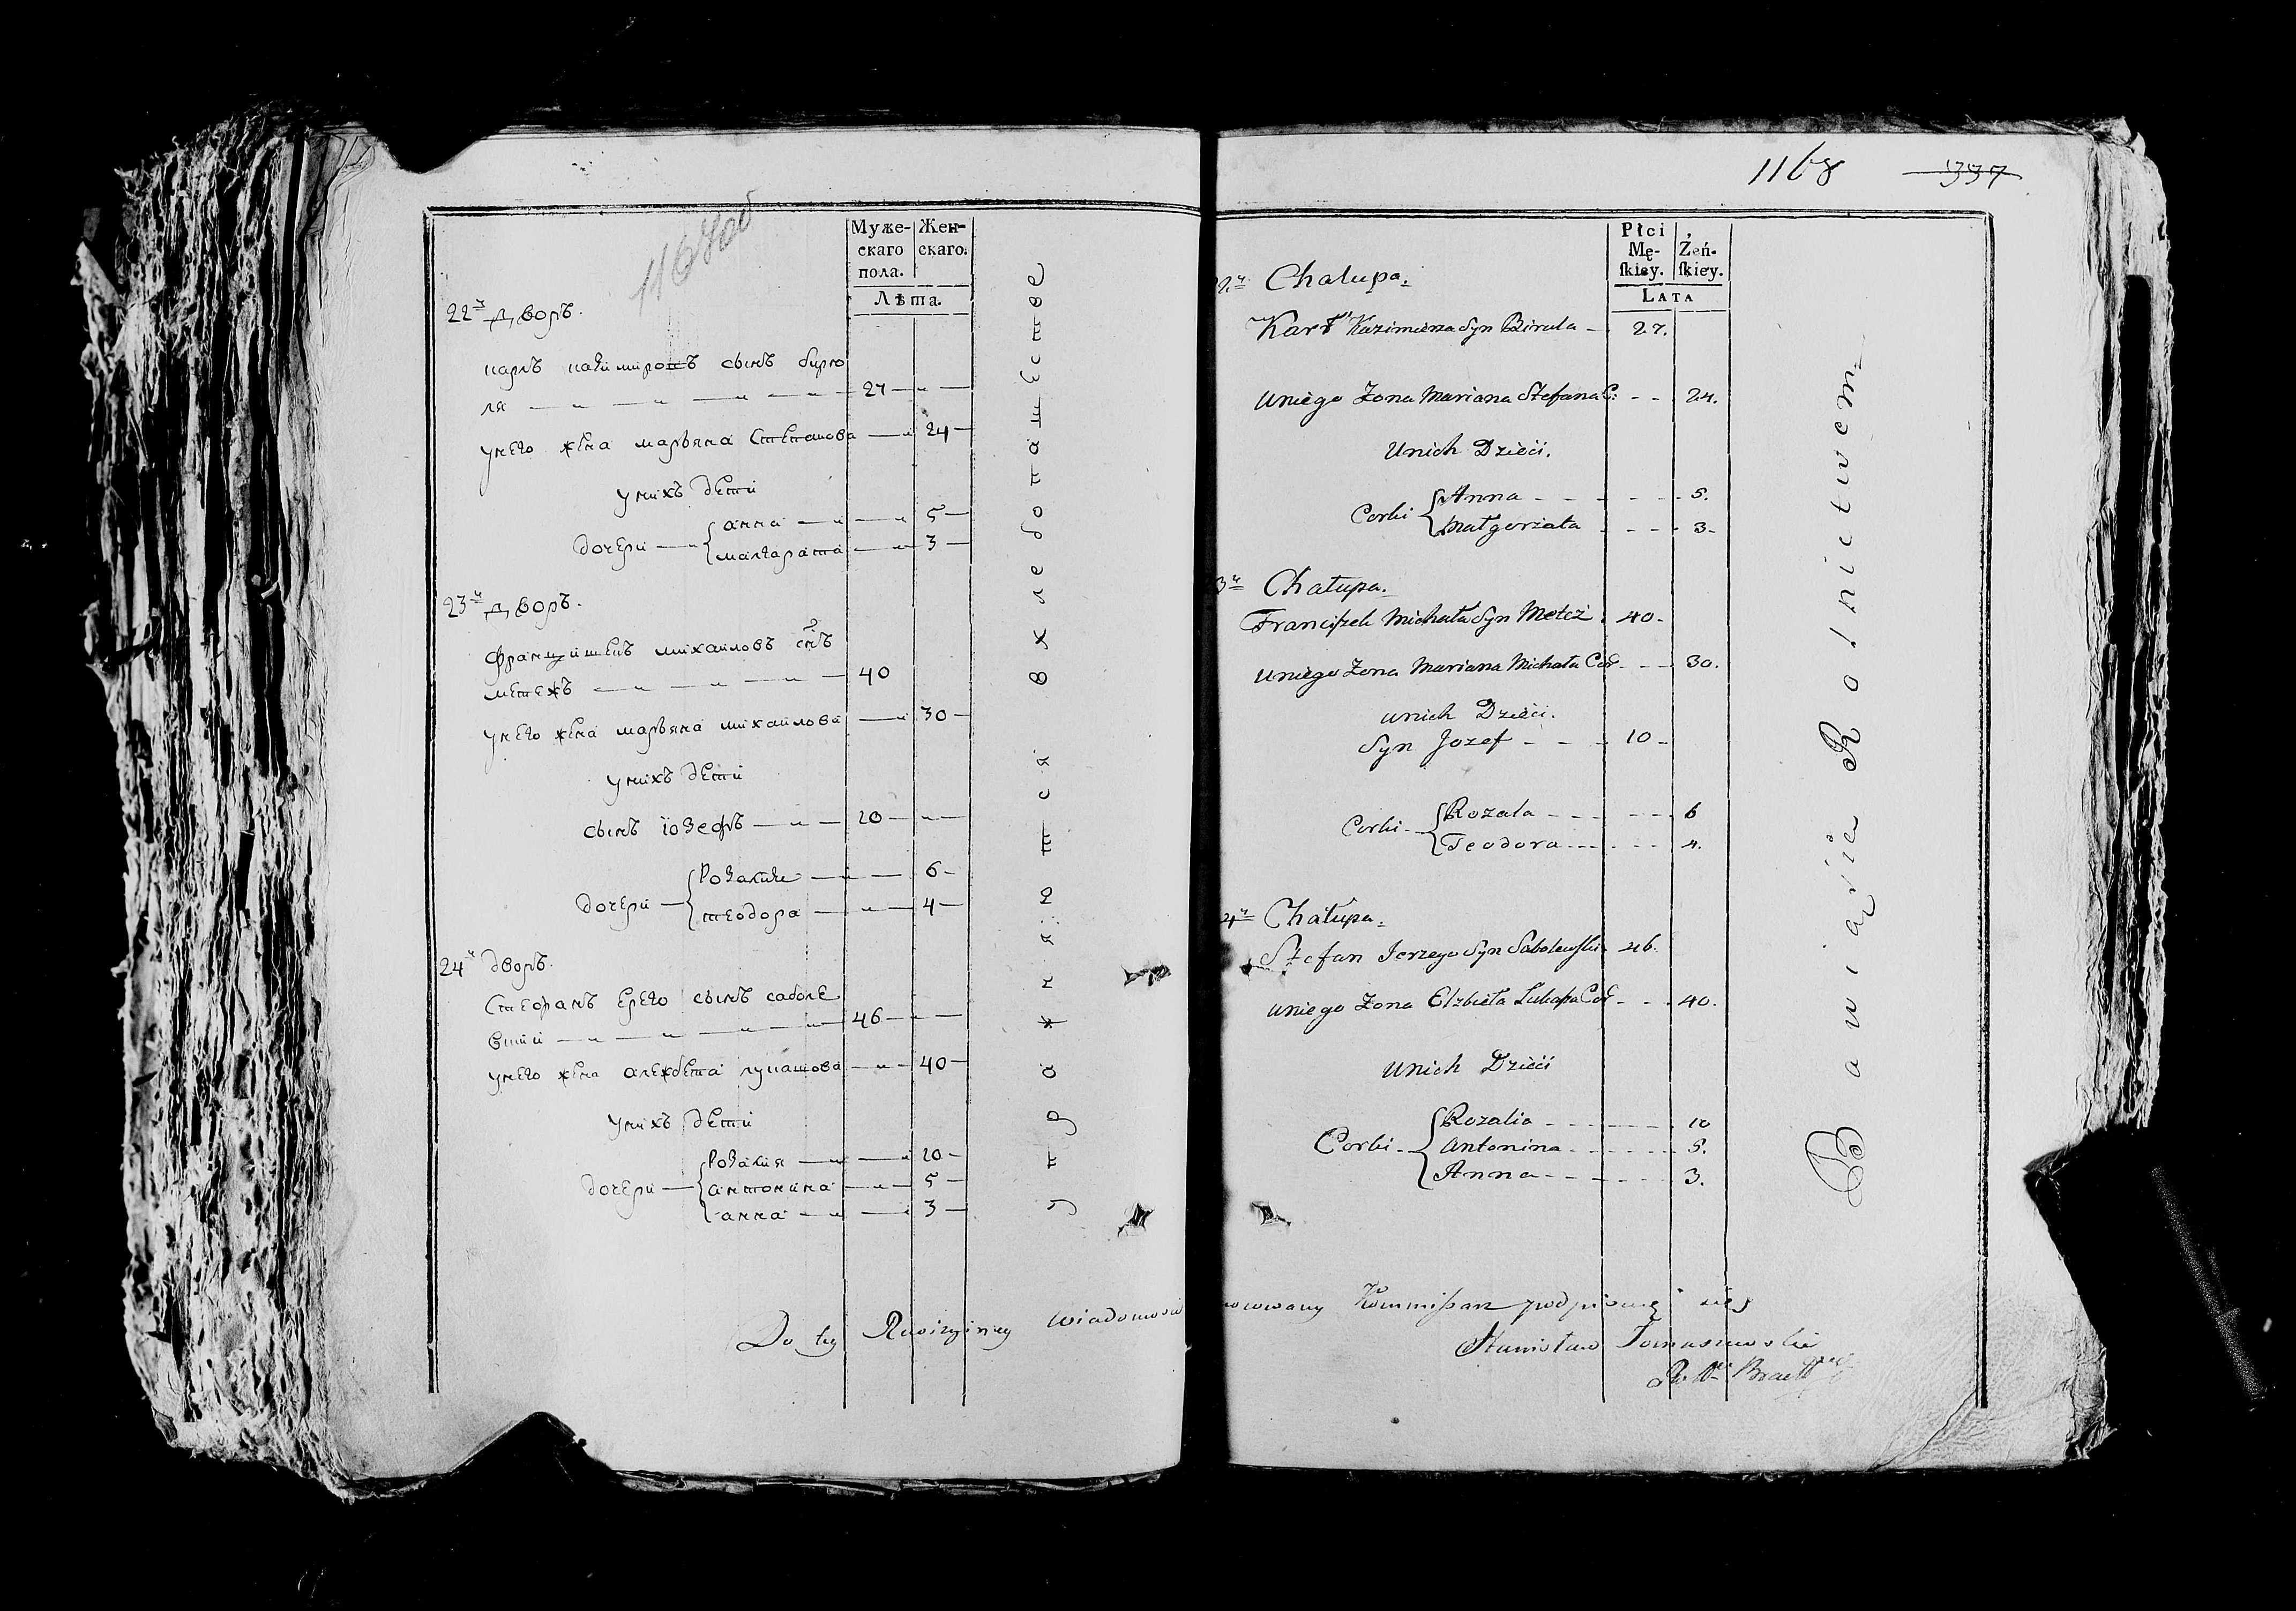 1167об
Муже-
скаго
пола.
Жен-
скаго.
Лѣта.
22й дворъ.
карлъ казимировъ сынъ бирю
ля 27
унего жена марьяна степанова 24
унихъ дети
дочери
анна 5
малгарата 3
23й дворъ.
францишекъ михаиловъ снъ
метежъ 40
унего жена марьяна михаилова 30
унихъ дети
сынъ іозефъ 10
дочери
розалие 6
теодора 4
24й дворъ.
стефанъ ерего сынъ саболе
вский 46
унего жена алежбета лукашова 40
унихъ дети
дочери
розалия 10
антонина 5
анна 3
упражняются вхлебопашестве
Do tey Rewizyiney Wiadomosci
1168
337
Płci
Mę-
skiey.
Żeń-
skiey.
LATA
2й Chalupa.
Karł Kazimierza Syn Birula 27.
Uniego Zona Mariana Stefana C. 24.
Unich Dzieci.
Corki
Anna 5.
Małgorzata 3.
3й Chalupa.
Franciszek Michała Syn Metez 40.
Uniego Zona Mariana Michała Cór 30.
unich Dzieci.
Syn Jozef 10
Corki
Rozala 6
Teodora 4.
4й Chalupa.
Stefan Jerzego Syn Sabolewski 46.
Uniego Zona Elzbieta Lukasza Cór 40.
Unich Dzieci
Corki
Rozalia 10
Antonina 5.
Anna 3.
Bawią się Rolnictwem
Kommisarz podpisuię się
Stanisław Tomaszewski